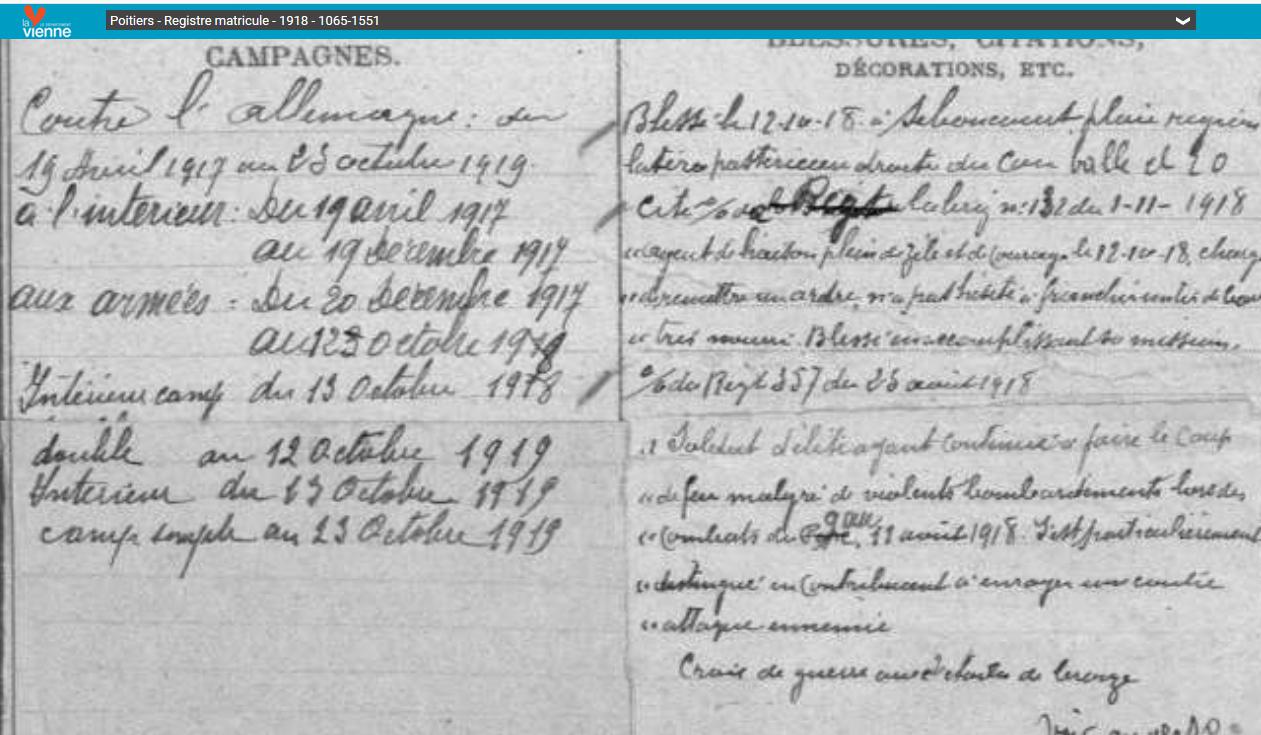 la
vienne
LE DÉPARTEMENT
Poitiers - Registre matricule - 1918 - 1065-1551
CAMPAGNES.
Contre l'allemagne: du
19 Avril 1917 au 23 octobre 1919.
à l'intérieur: Du 19 avril 1917
au 19 Décembre 1917
aux armées: Du 20 Décembre 1917
au 12 Octobre 1918
Intérieur camp du 13 Octobre 1918
double au 12 Octobre 1919
Intérieur du 13 Octobre 1919
camp simple au 23 Octobre 1919
BLESSURES, CITATIONS,
DÉCORATIONS, ETC.
Blessé le 12-10-18 à plaie région
latéro postérieure droite du Cou balle
Cité du 1-11-1918
"agent de liaison plein de zèle et de courage. le 12-10-18, charg
"de remettre un ordre, n'a pas hésité à franchir
"très Blessé en accomplissant sa mission.
du Regt 357 du 26 août 1918
"Soldat d'élite ayant continué à faire le Coup
"de feu malgré de violents bombardements lors des
"Combats du 11 août 1918. S'est particulièrement
"distingué en Contribuant à enrayer une contre
"attaque ennemie
Croix de guerre avec étoiles de bronze